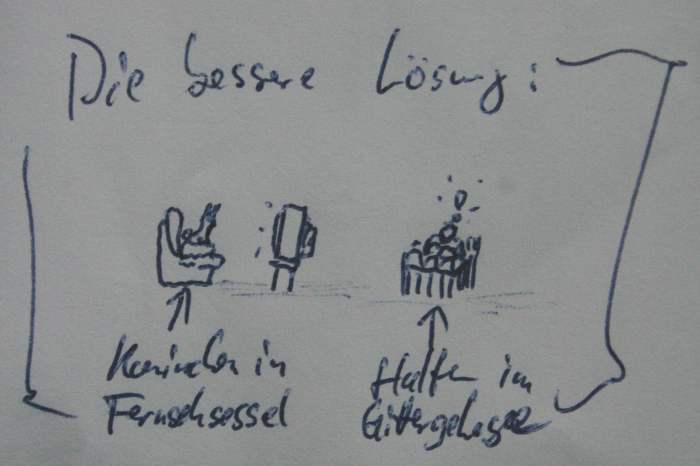 Die bessere Lösung:
Kaninchen in
Fernsehsessel
Halter im
Gittergehege